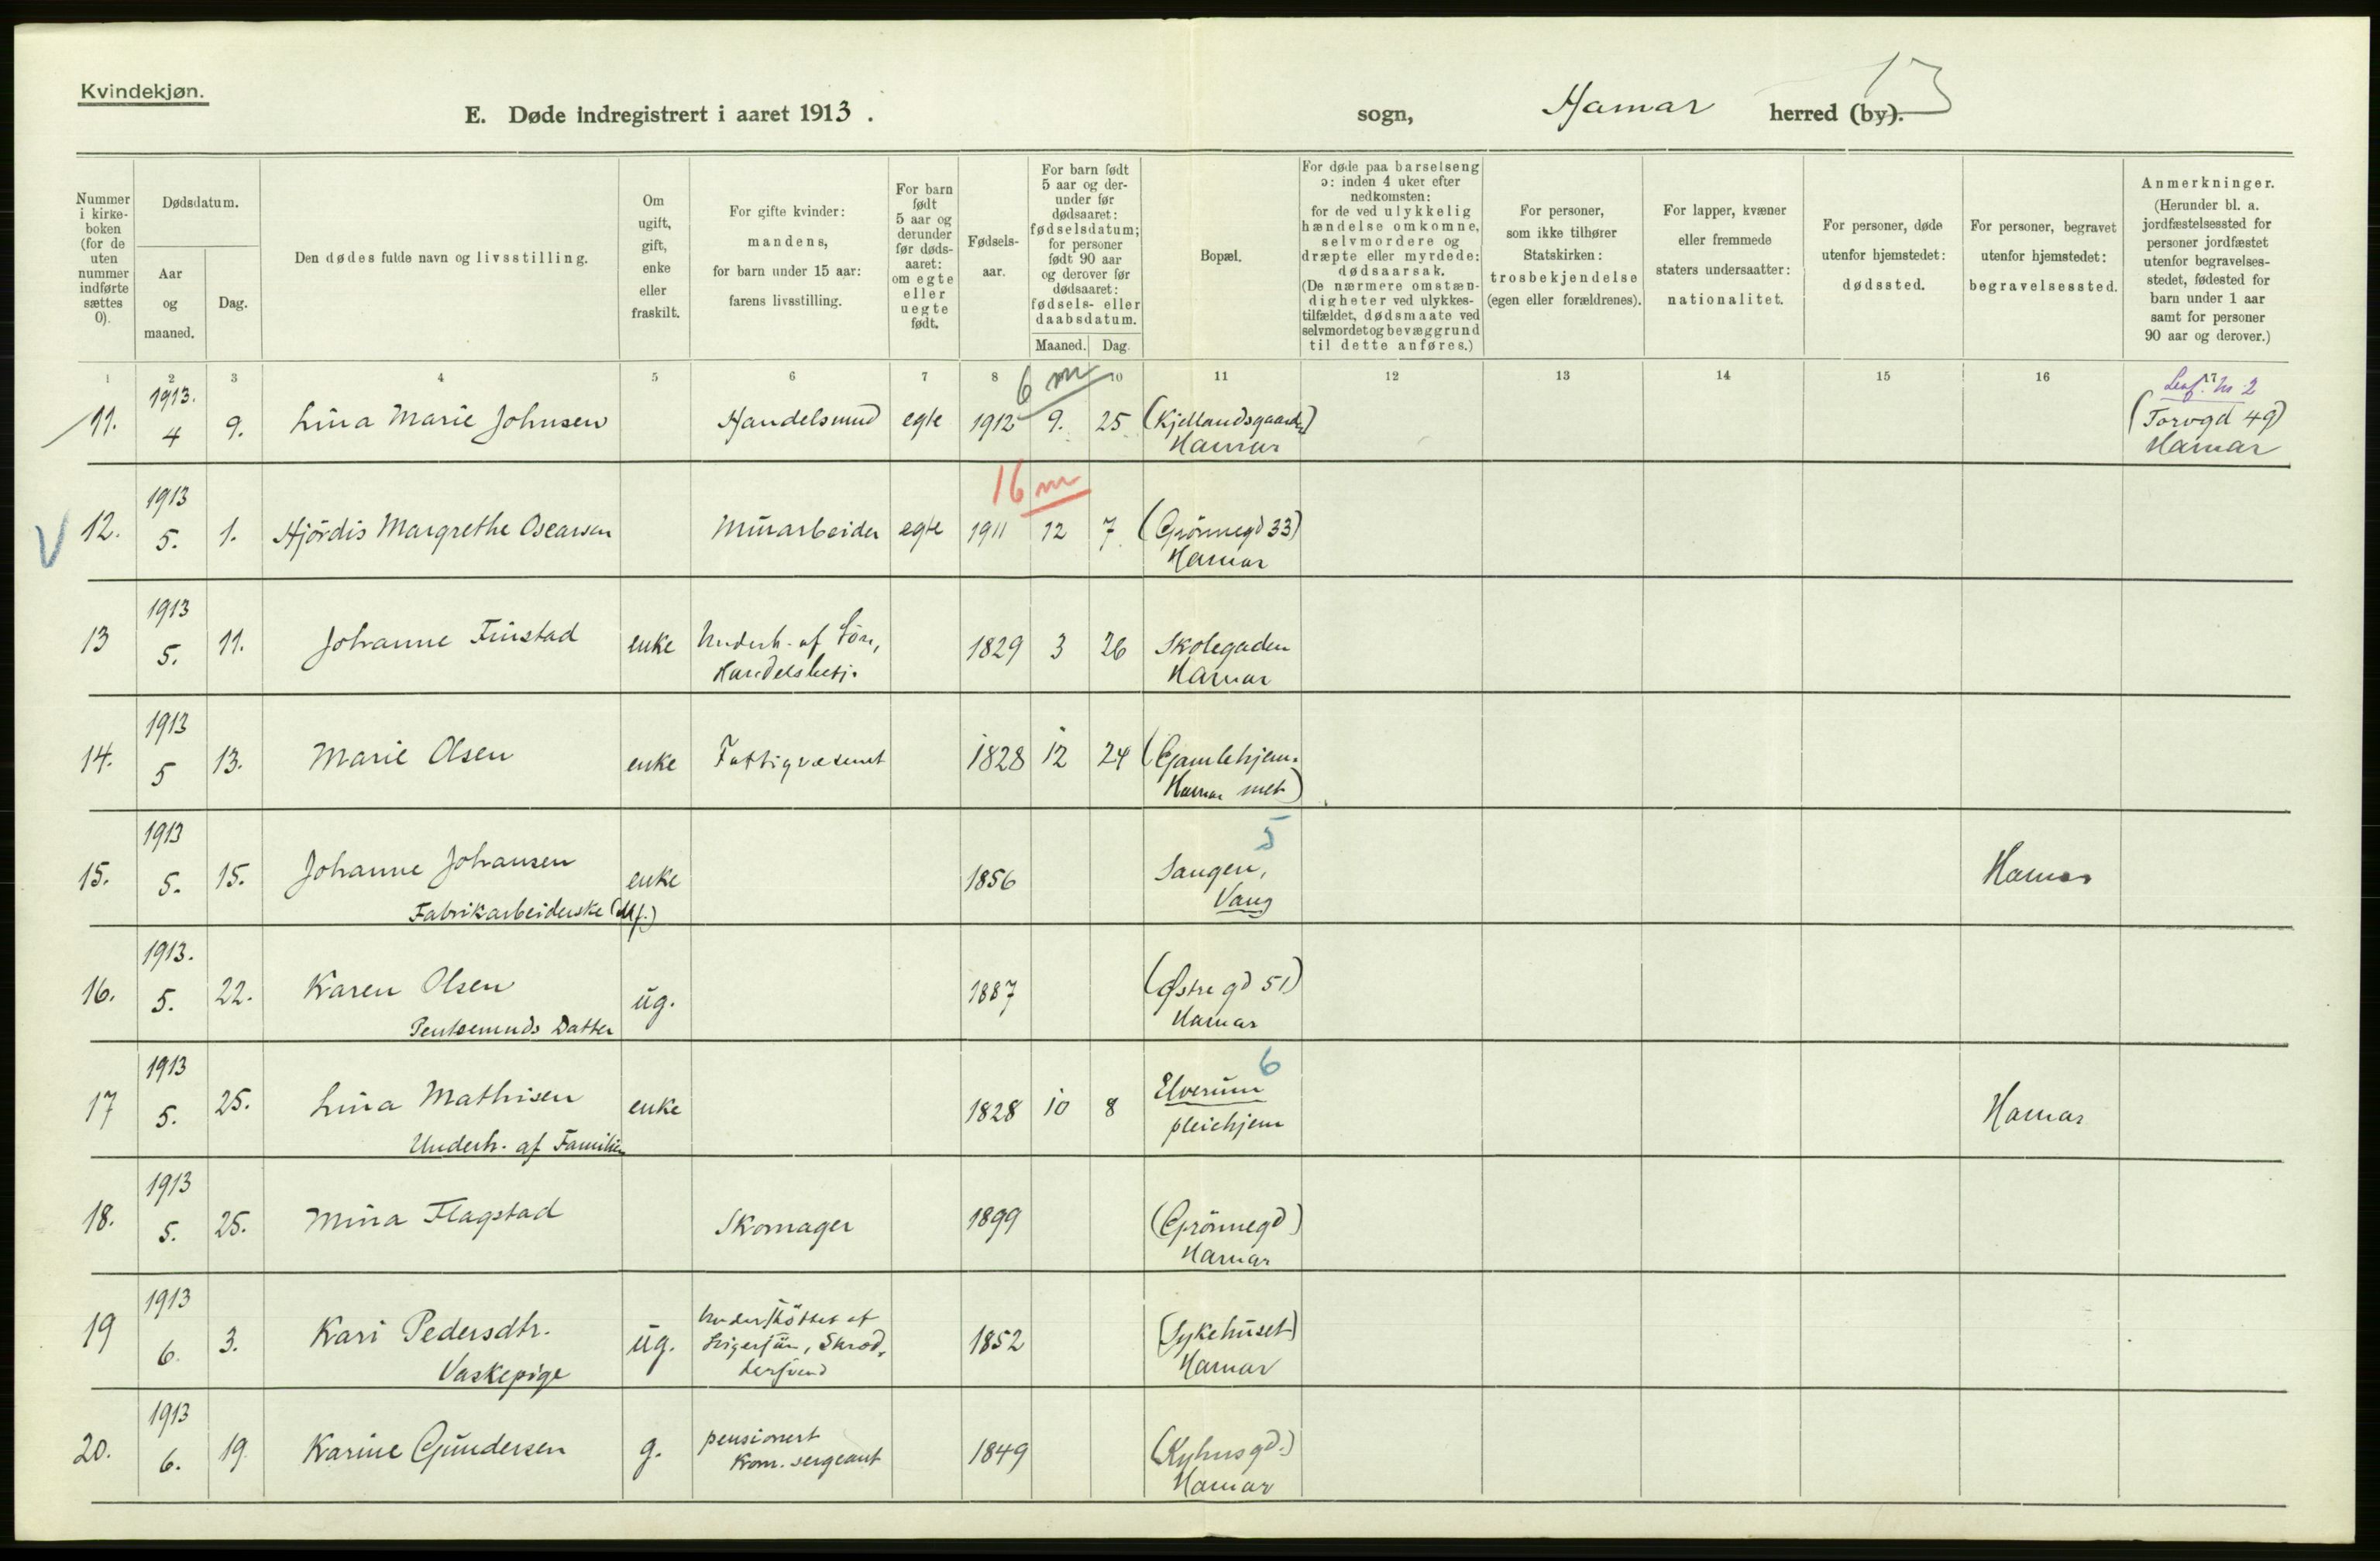 Kvindekjøn.
E. Døde indregistrert i aaret 1913. sogn, Hamar herred (by). 13
Nummer i kirkeboken (for de uten nummer indførte sættes 0).
Dødsdatum.
Aar og maaned.
Dag.
Den dødes fulde navn og livsstilling.
Om ugift, gift, enke eller fraskilt.
For gifte kvinder: mandens, for barn under 15 aar: farens livsstilling.
For barn født 5 aar og derunder før dødsaaret: om egte eller uegte født.
Fødselsaar.
For barn født 5 aar og derunder før dødsaaret: fødselsdatum; for personer født 90 aar og derover før dødsaaret: fødsels- eller daabsdatum.
Maaned. Dag.
Bopæl.
For døde paa barselseng ɔ: inden 4 uker efter nedkomsten: for de ved ulykkelig hændelse omkomne, selvmordere og dræpte eller myrdede: dødsaarsak. (De nærmere omstændigheter ved ulykkestilfældet, dødsmaate ved selvmordet og bevæggrund til dette anføres.)
For personer, som ikke tilhører Statskirken: trosbekjendelse (egen eller forældrenes).
For lapper, kvæner eller fremmede staters undersaatter: nationalitet.
For personer, døde utenfor hjemstedet: dødssted.
For personer, begravet utenfor hjemstedet: begravelsessted.
Anmerkninger. (Herunder bl. a. jordfæstelsessted for personer jordfæstet utenfor begravelsesstedet, fødested for barn under 1 aar samt for personer 90 aar og derover.)
1 2 3 4 5 6 7 8 10 11 12 13 14 15 16 17
11. 1913. 4 9. Lina Marie Johnsen Handelsmnd egte 1912 9. 25 (Kjellandsgaarden) Hamar (Torvgd 49) Hamar
6 m
16 m
12. 1913 5. 1. Hjördis Margrethe Oscarsen Murarbeider egte 1911 12 7 (Grönnegd 33) Hamar
13 1913 5. 11. Johanne Finstad enke Underh. af Søn, Handelsbetj. 1829 3 26 Skolegaden Hamar
14. 1913 5 13. Marie Olsen enke Fattigvæsenet 1828 12 24 (Gamlehjem- Hamar met)
15. 1913 5. 15. Johanne Johansen Fabrikarbeiderske enke 1856 5 Sangen, Vang Hamar
16. 1913. 5. 22. Karen Olsen Datter ug. 1887 (Østregd 51) Hamar
17 1913 5. 25. Lina Mathisen Underh. af Familien enke 1828 10 8 6 Elverum pleiehjem Hamar
18. 1913 5. 25. Mina Flagstad Skomager 1899 (Grönnegd) Hamar
19 1913 6. 3. Kari Pedersdtr. Vaskepige ug. Understöttet af Svigersön, Skræddersvend 1852 (Sykehuset) Hamar
20. 1913 6. 19. Karine Gundersen g. pensionert Kom. sergeant 1849 (Kyhusgd.) Hamar